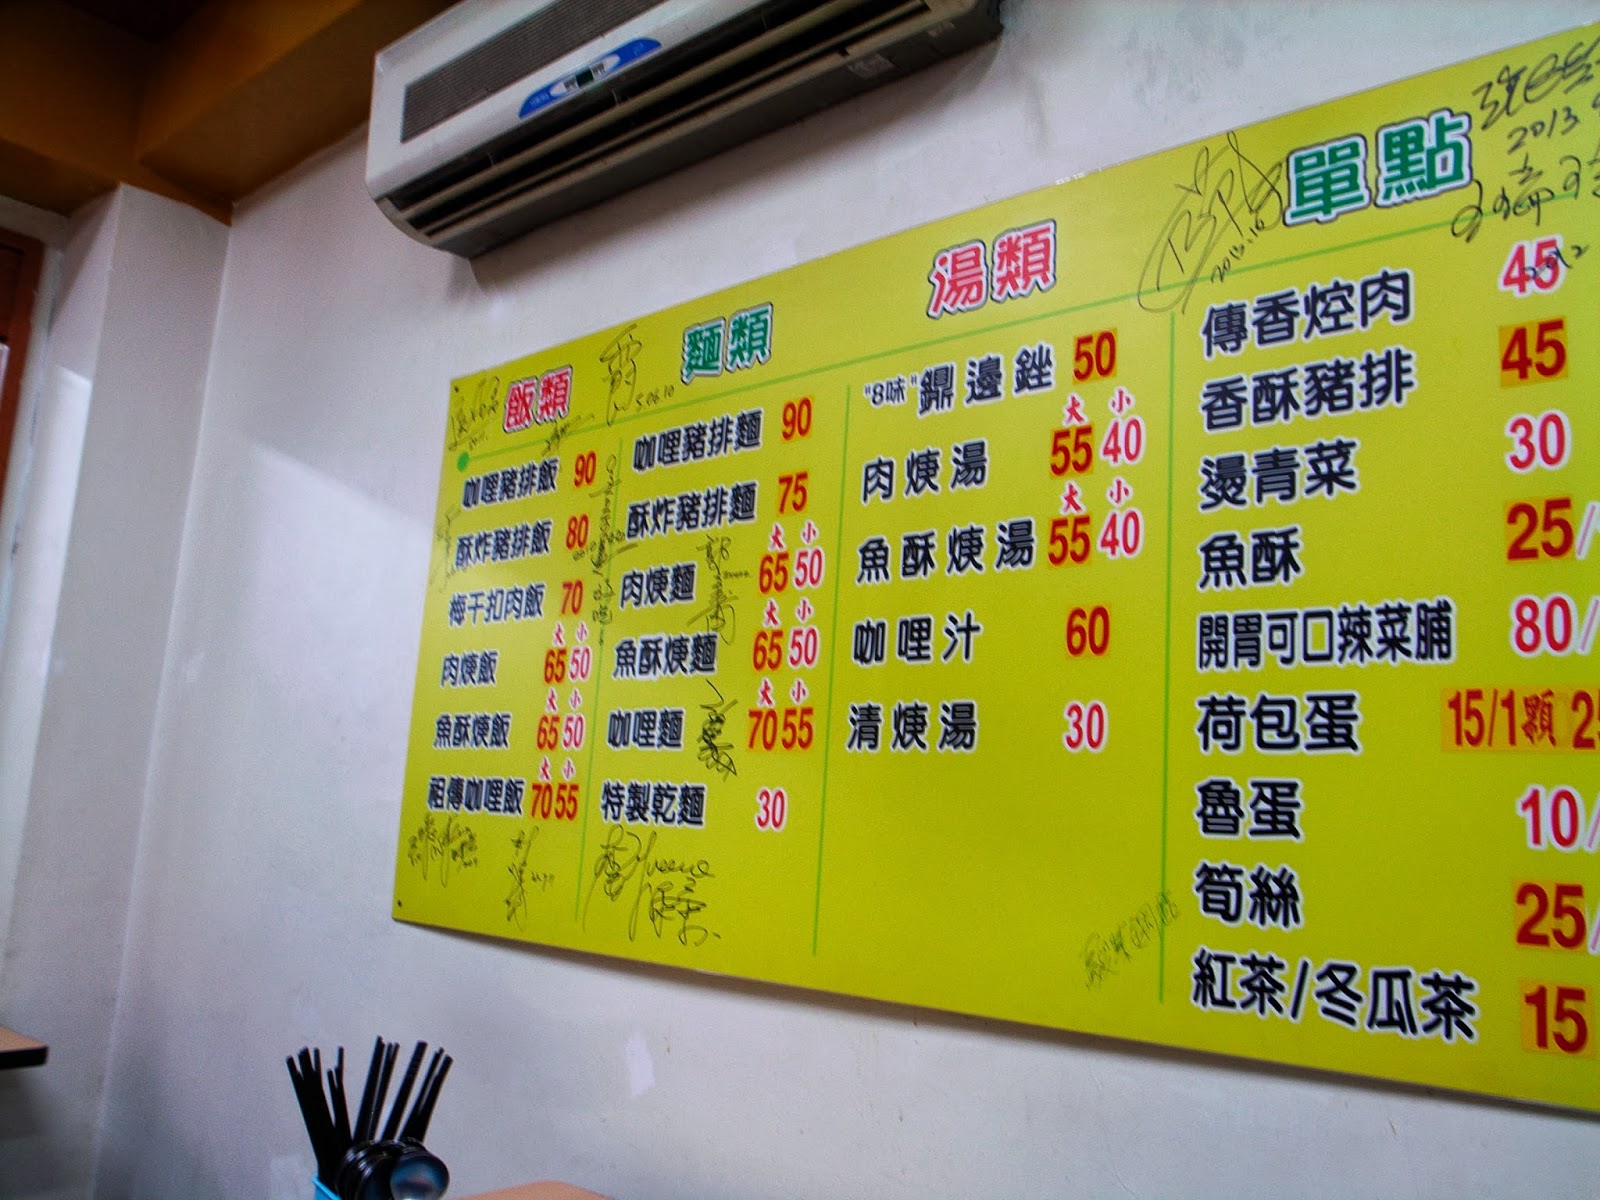 飯類
咖哩豬排飯 90
酥炸豬排飯 80
梅干扣肉飯 70
大 小
肉焿飯 65 50
大 小
魚酥焿飯 65 50
大 小
祖傳咖哩飯 70 55
麵類
咖哩豬排麵 90
酥炸豬排麵 75
大 小
肉焿麵 65 50
大 小
魚酥焿麵 65 50
大 小
咖哩麵 70 55
特製乾麵 30
湯類
"8味"鼎邊銼 50
大 小
肉焿湯 55 40
大 小
魚酥焿湯 55 40
咖哩汁 60
清焿湯 30
單點
傳香焢肉 45
香酥豬排 45
燙青菜 30
魚酥 25/
開胃可口辣菜脯 80/
荷包蛋 15/1顆 25
魯蛋 10/
筍絲 25/
紅茶/冬瓜茶 15
2013